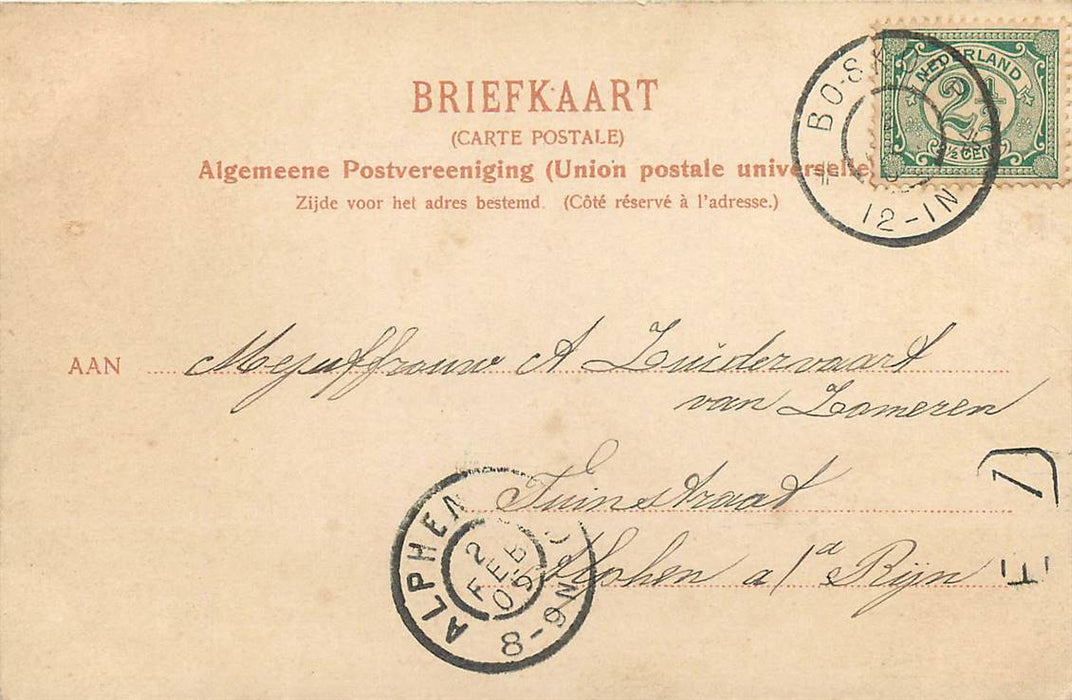 BRIEFKAART
(CARTE POSTALE)
Algemeene Postvereeniging (Union postale universelle)
Zijde voor het adres bestemd. (Côté réservé à l'adresse.)
NEDERLAND
2½
BO-SK
12-1N
AAN Mejuffrouw A Zuidervaart
van Zomeren
Tuinstraat
Alphen a/d Rijn
ALPHEN
2
FEB
05
8-9N